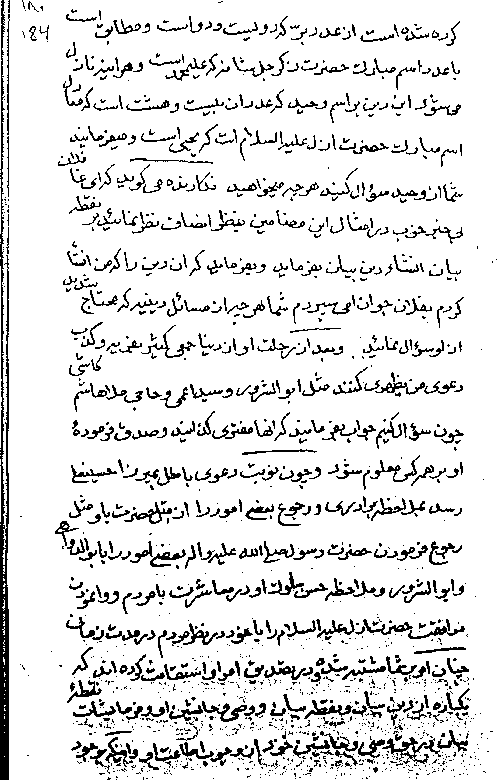 ۱۸۰
۱۸۴
کرده شده است از عدد رب که دویست و دو است و مطابق است
با عدد اسم مبارک حضرت ذکر جل شأنه که علیمحمد است و هر امیر نازل
می شود این دین بر اسم وحید که عدد ان بیست و هشت است که مقابل
اسم مبارک حضرت ازل علیه السلام است که یحیی است و میفرمایند
شما از وحید سؤال کنید هر چه میخواهید نکارنده می کوید که ای
چنین خوب در امثال این مضامین بنظر انصاف نظر نمائید نقطه
بیان انشاء دین بیان بفرماید و بفرماید که ان دین را که من انشا
کردم بفلان جوان می سپردم شما هر چیز از مسائل دینیه که محتاج
از او سؤال نمائید و بعد از رحلت او از دنیا جمعی کثیر
دعوی من یظهری کنند مثل ابو الشرور و سید اعمی و حاجی ملا هاشم کاشی
چون سؤال کنیم جواب بفرمایند که انها مفتری کذابند و صدق فرموده
او بر هر کس معلوم شود و چون نوبت دعوی باطل بمیرزا حسینعلی
رسد بملاحظه برادری و رجوع بعضی امور را از مثل حضرت باو مثل
رجوع فرمودن حضرت رسول صلی الله علیه و اله بعضی امور را بابو الدواهی
و ابو الشرور و ملاحظه حسن سلوک او در معاشرت با مردم و وانمودن
موافقت حضرت ازل علیه السلام را با خود در نظر مردم در مدت زمان
چنان امر بر شما مشتبه شده و در تصدیق امر او استقامت کرده اید که
یکباره از دین بیان و نقطه بیان و وصی و جانشین او و فرمایشات نقطهٔ
بیان در حق وصی و جانشین خود از وجوب اطاعت او و اینکه وجود